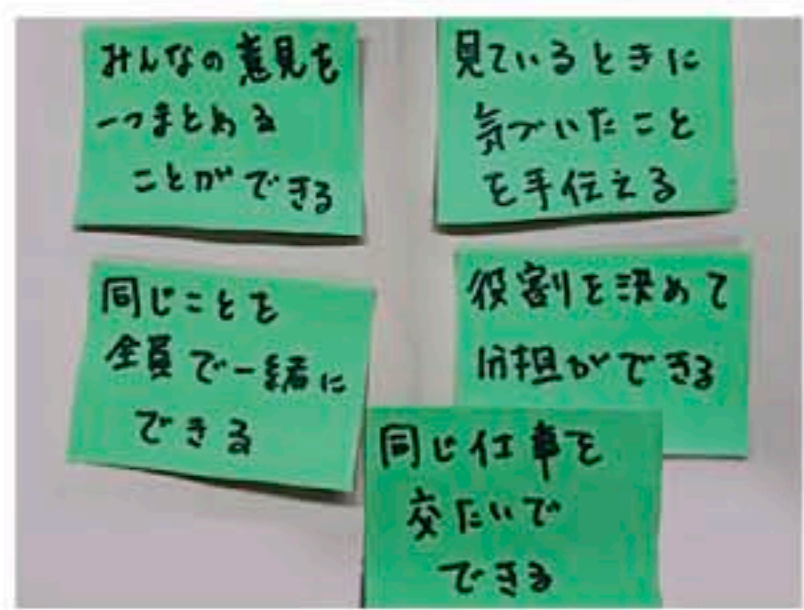 みんなの意見を
一つまとめる
ことができる
見ているときに
気づいたこと
を手伝える
同じことを
全員で一緒に
できる
役割を決めて
分担ができる
同じ仕事を
交たいで
できる